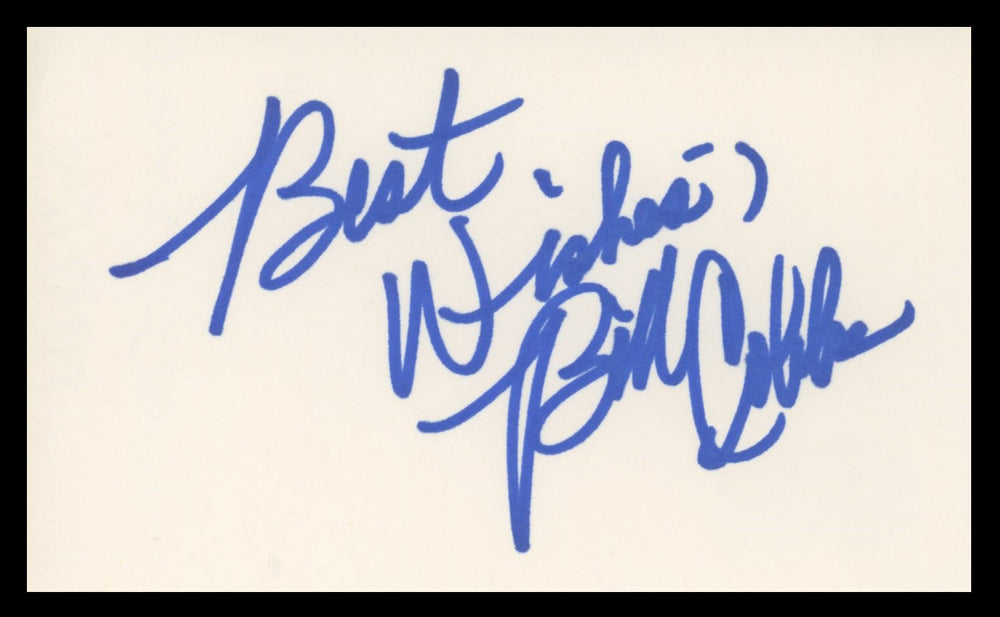 Best
Wishes,
Bill Cobbs